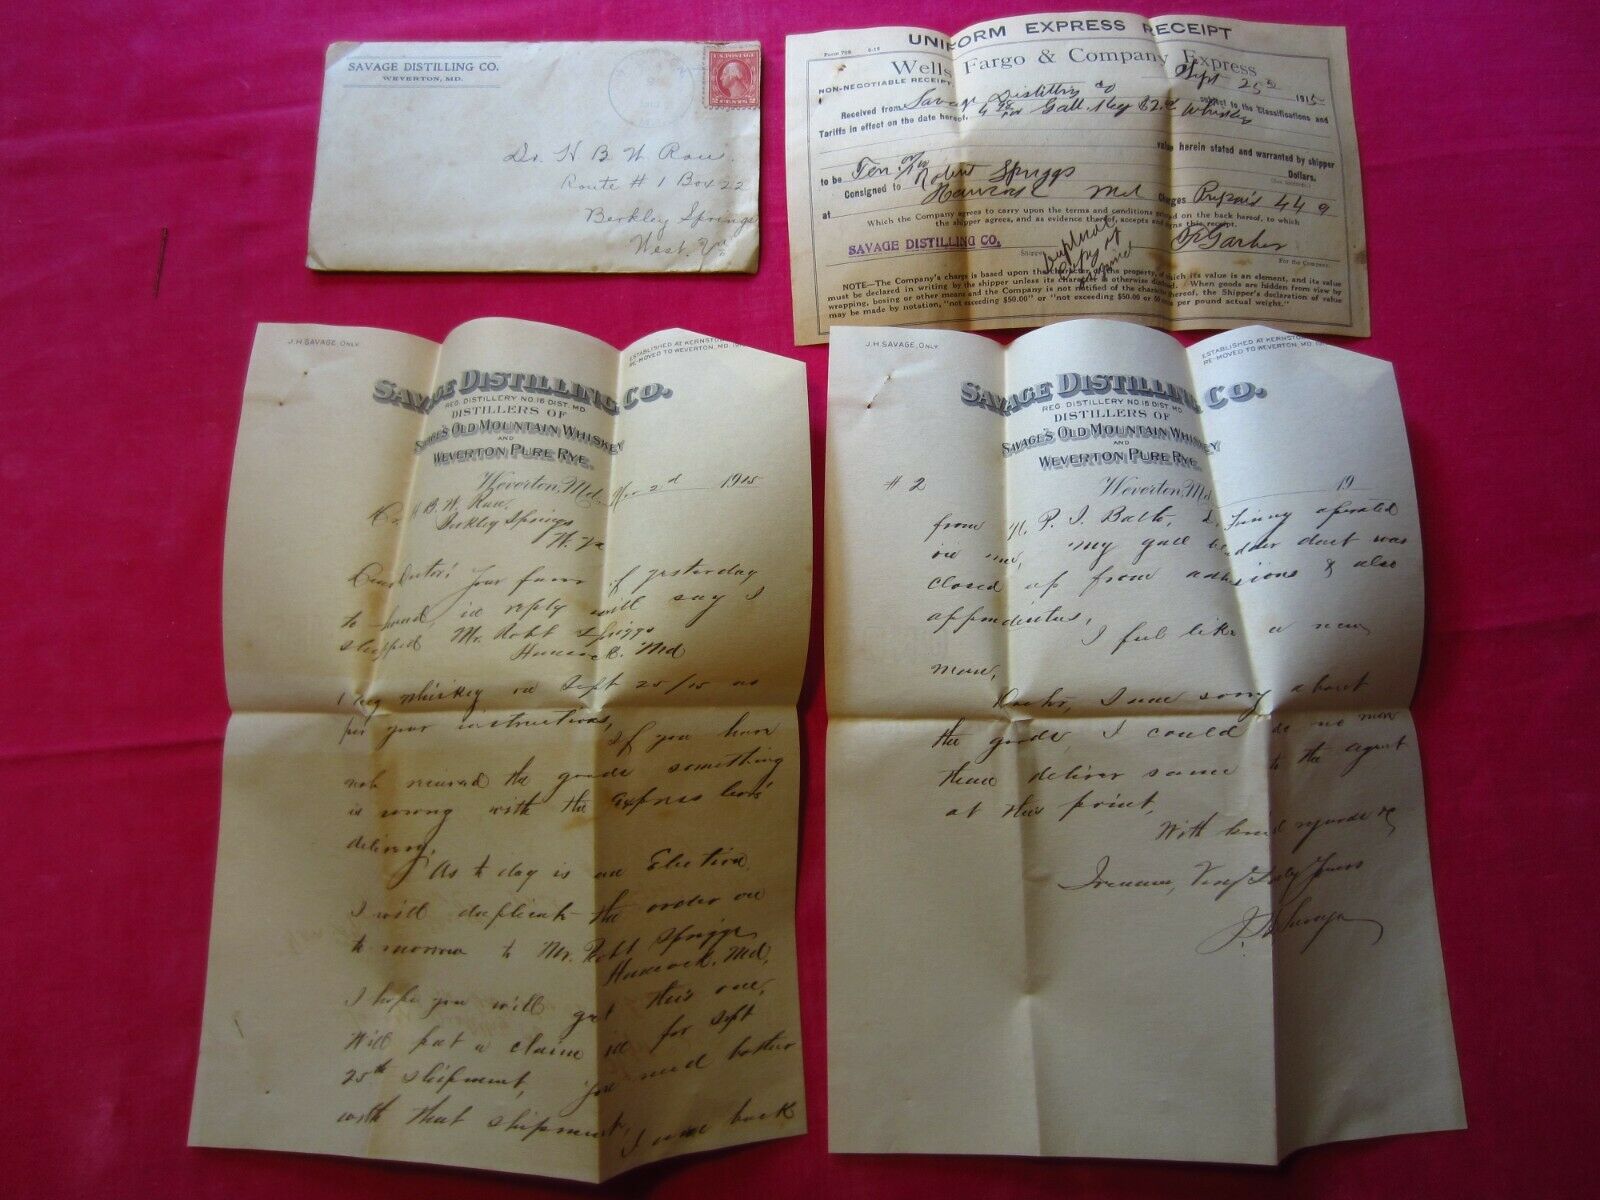 SAVAGE DISTILLING CO.
WEVERTON, MD.
U.S. POSTAGE
2 CENTS 2
Dr. H B W Rau.
Route # 1 Box 22
Berkley Springs
West. Va
UNIFORM EXPRESS RECEIPT
Form 708 5-15
Wells Fargo & Company Express
NON-NEGOTIABLE RECEIPT
Sept 25 1915
Received from Savage Distilling Co
subject to the Classifications and
Tariffs in effect on the date hereof, Gall. Keg Whiskey
value herein stated and warranted by shipper
to be Ten Dollars.
Consigned to Robert Spriggs
at Hancock Md Charges Prepaid 449
Which the Company agrees to carry upon the terms and conditions printed on the back hereof, to which
the shipper agrees, and as evidence thereof, accepts and signs this receipt.
SAVAGE DISTILLING CO.
Shipper
Garber
For the Company.
Duplicate
Copy of
NOTE—The Company's charge is based upon the character of the property, of which its value is an element, and its value
must be declared in writing by the shipper unless its character is otherwise disclosed. When goods are hidden from view by
wrapping, boxing or other means and the Company is not notified of the character thereof, the Shipper's declaration of value
may be made by notation, "not exceeding $50.00" or "not exceeding $50.00 or 50 cents per pound actual weight."
J.H SAVAGE, ONLY.
ESTABLISHED AT KERNSTO
RE-MOVED TO WEVERTON, MD. 19
SAVAGE DISTILLING CO.
REG. DISTILLERY NO. 16 DIST. MD.
DISTILLERS OF
SAVAGE'S OLD MOUNTAIN WHISKEY
AND
WEVERTON PURE RYE.
Weverton, Md. Nov 2nd 1915
Dr. H B. W. Rau.
Berkley Springs
W. Va
Dear Doctor: Your favor of yesterday
to-hand, in reply will say I
shipped Mr. Robt Spriggs
Hancock. Md
1 Keg whiskey on Sept 25/15 as
per your instructions,
If you have
not received the goods something
is wrong with the Express Co's
delivery.
As to day is an Election
I will duplicate the order on
to morrow to Mr. Robt Spriggs
Hancock, Md.
I hope you will get this one,
Will put a claim in for Sept
25th shipment, you need bother
with that shipment, I am back
J.H SAVAGE, ONLY.
ESTABLISHED AT KERNSTO
RE-MOVED TO WEVERTON, MD. 19
SAVAGE DISTILLING CO.
REG. DISTILLERY NO. 16 DIST. MD.
DISTILLERS OF
SAVAGE'S OLD MOUNTAIN WHISKEY
AND
WEVERTON PURE RYE.
# 2 Weverton, Md 19
from H. P. I. Balto, D. Finny operated
on me, my gall bladder duct was
closed up from adhesions & also
appendicitus,
I feel like a new
man,
Doctor, I am sorry about
the goods, I could do no more
than deliver same to the agent
at this point,
With kind regards &c
I remain, Very Truly Yours
J. H Savage